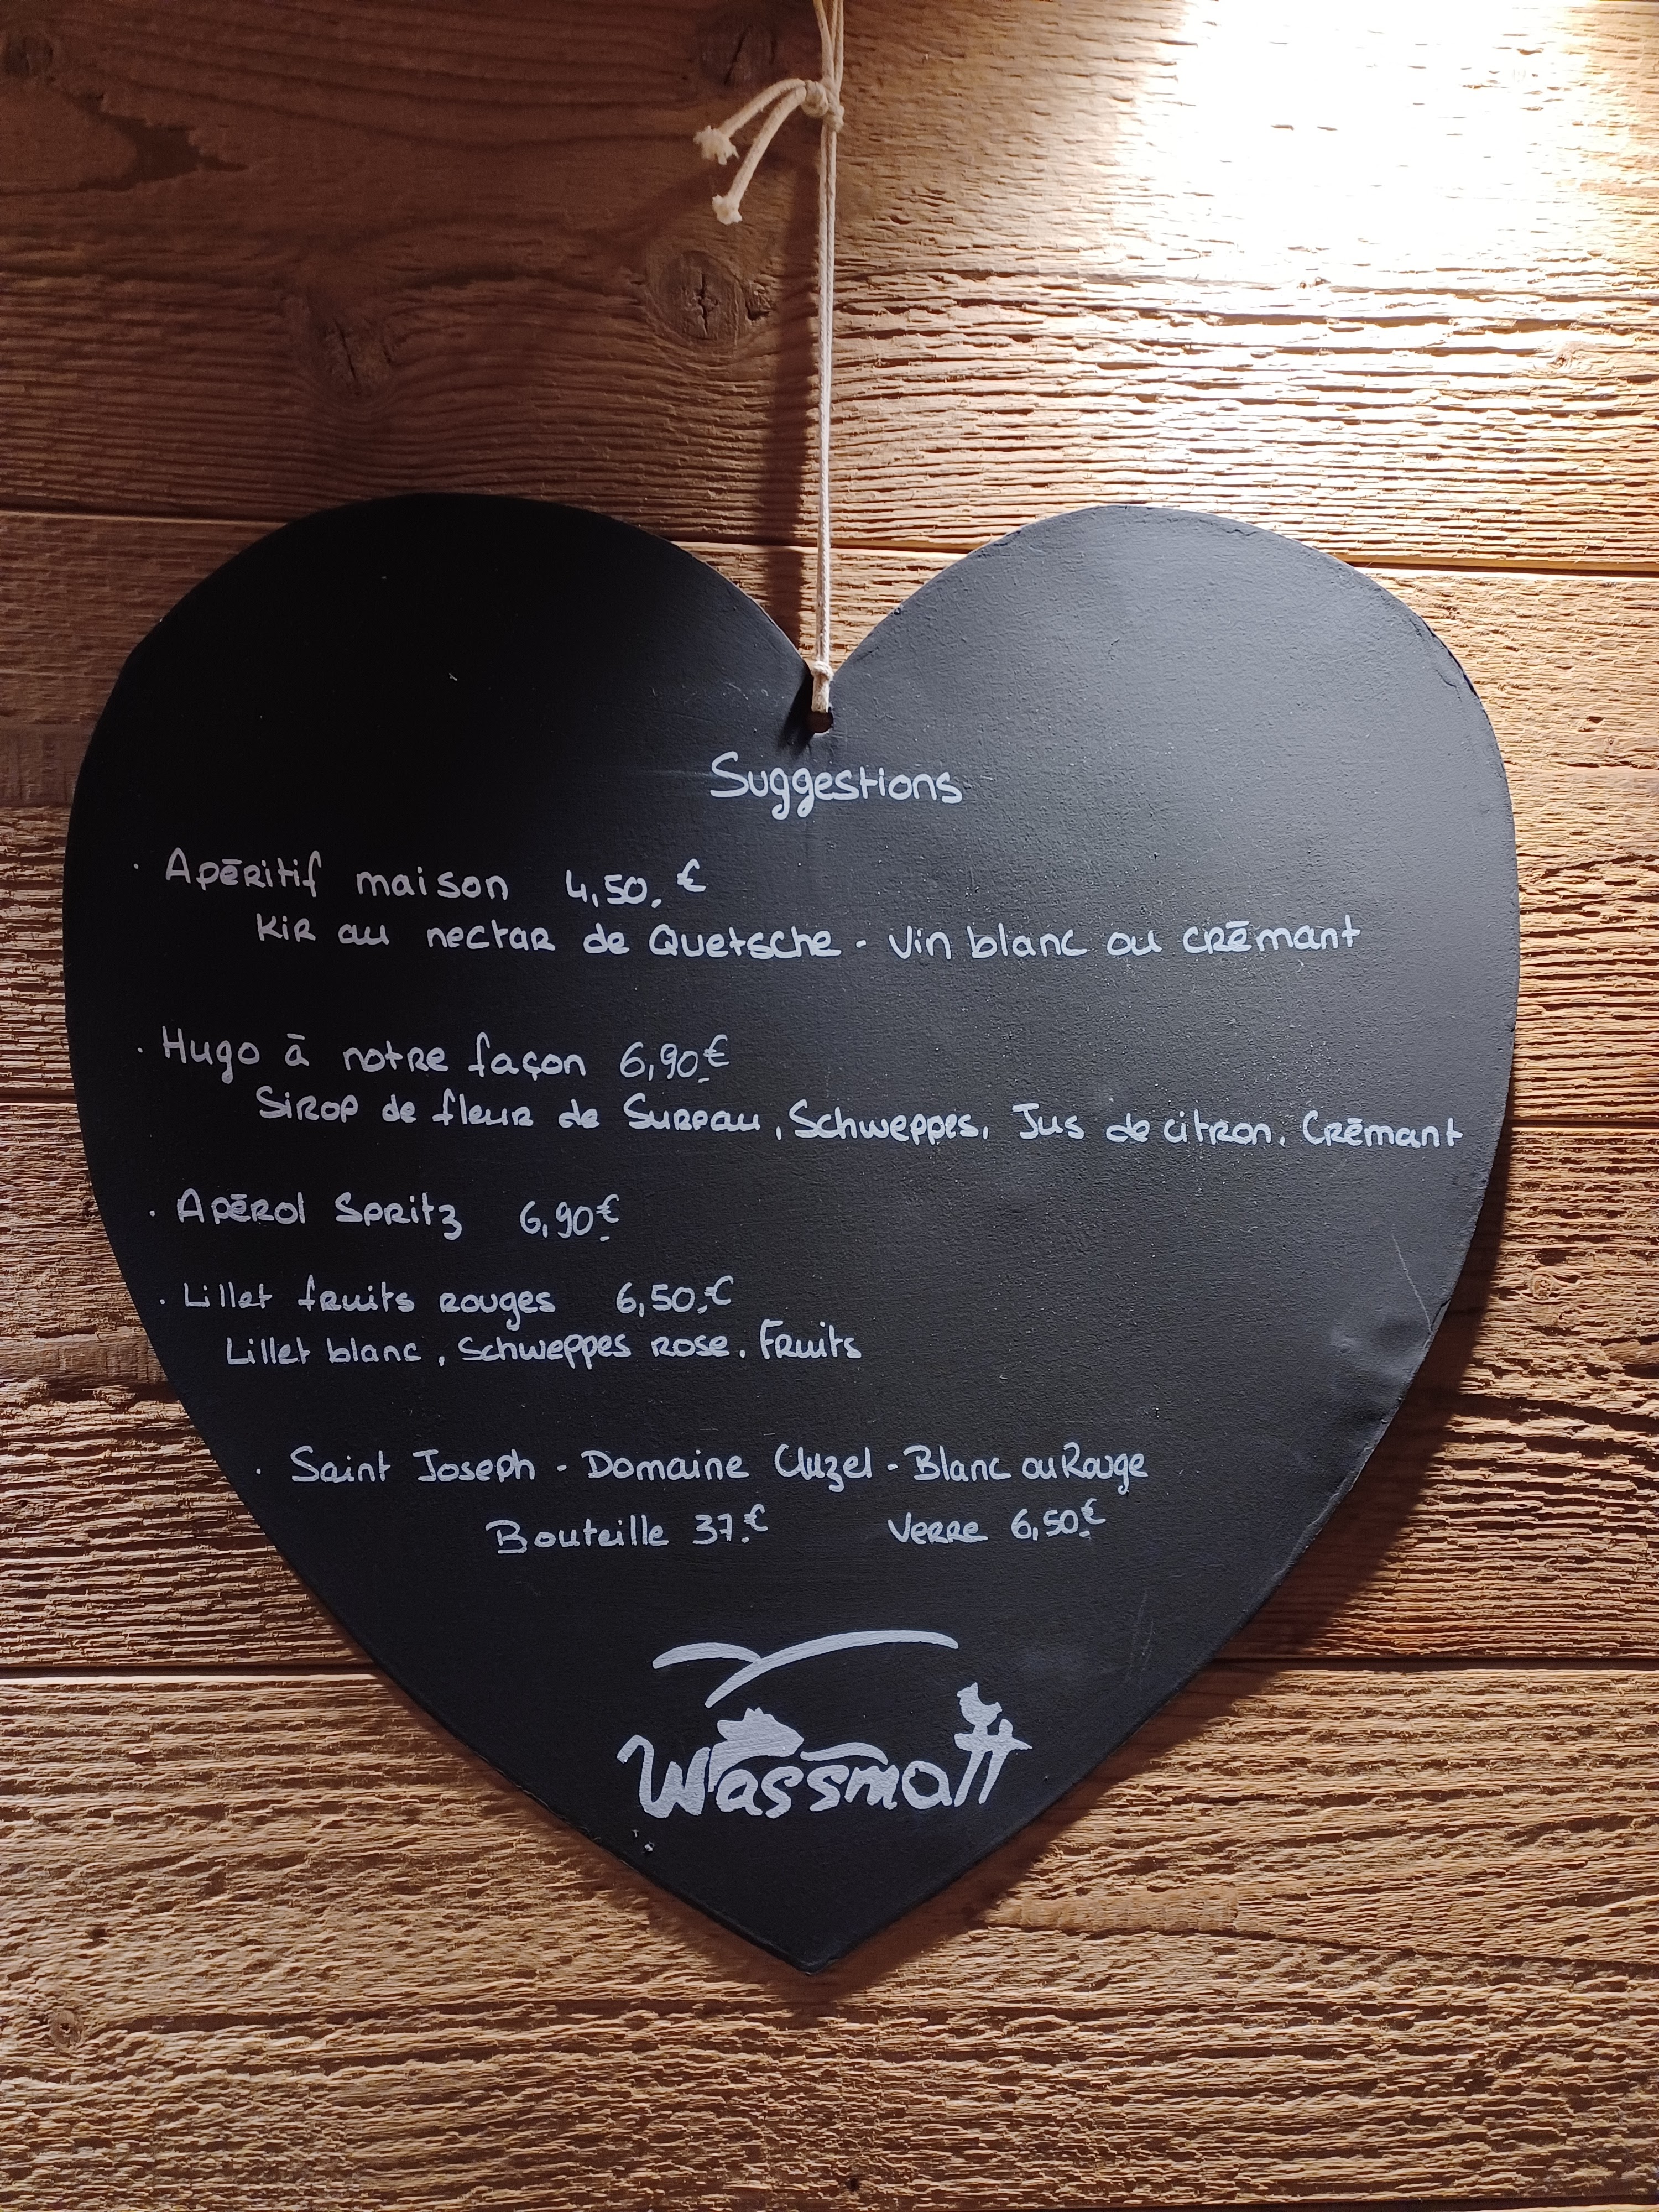 Suggestions
· Apéritif maison 4,50.€
Kir au nectar de Quetsche - Vin blanc ou crémant
· Hugo à notre façon 6,90€
Sirop de fleur de Sureau, Schweppes, Jus de citron, Crémant
· Apérol Spritz 6,90€
· Lillet fruits rouges 6,50.€
Lillet blanc, Schweppes rose, Fruits
· Saint Joseph - Domaine Cluzel - Blanc ou Rouge
Bouteille 37.€ Verre 6,50€
Wassmatt